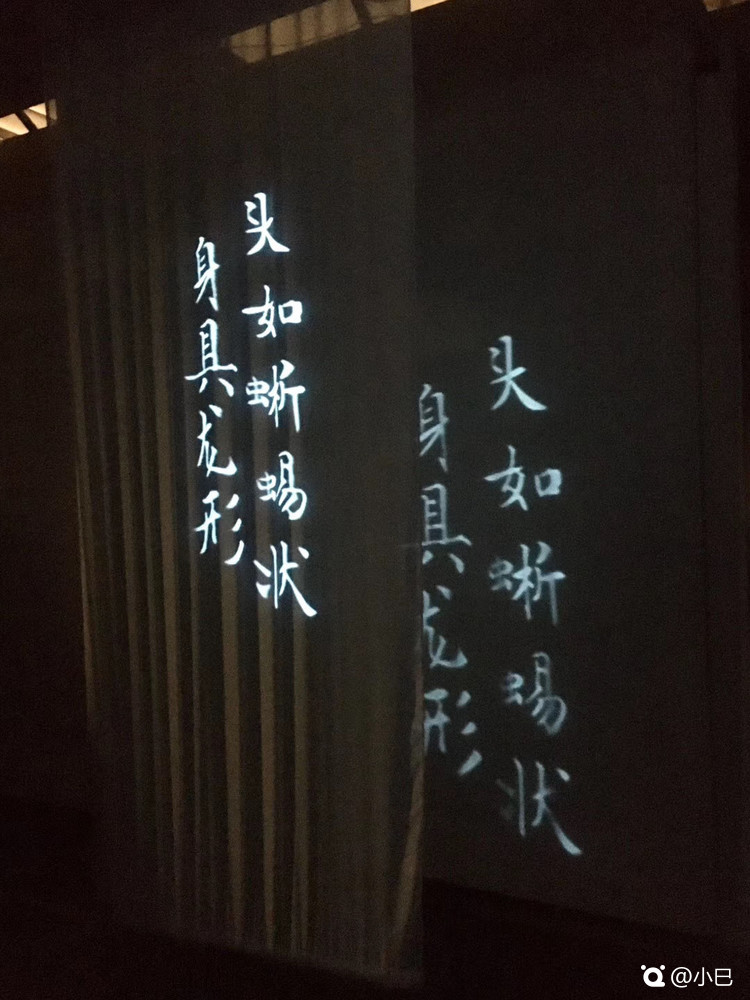 头如蜥蜴状
身具龙形
头如蜥蜴状
身具龙形
@小巳